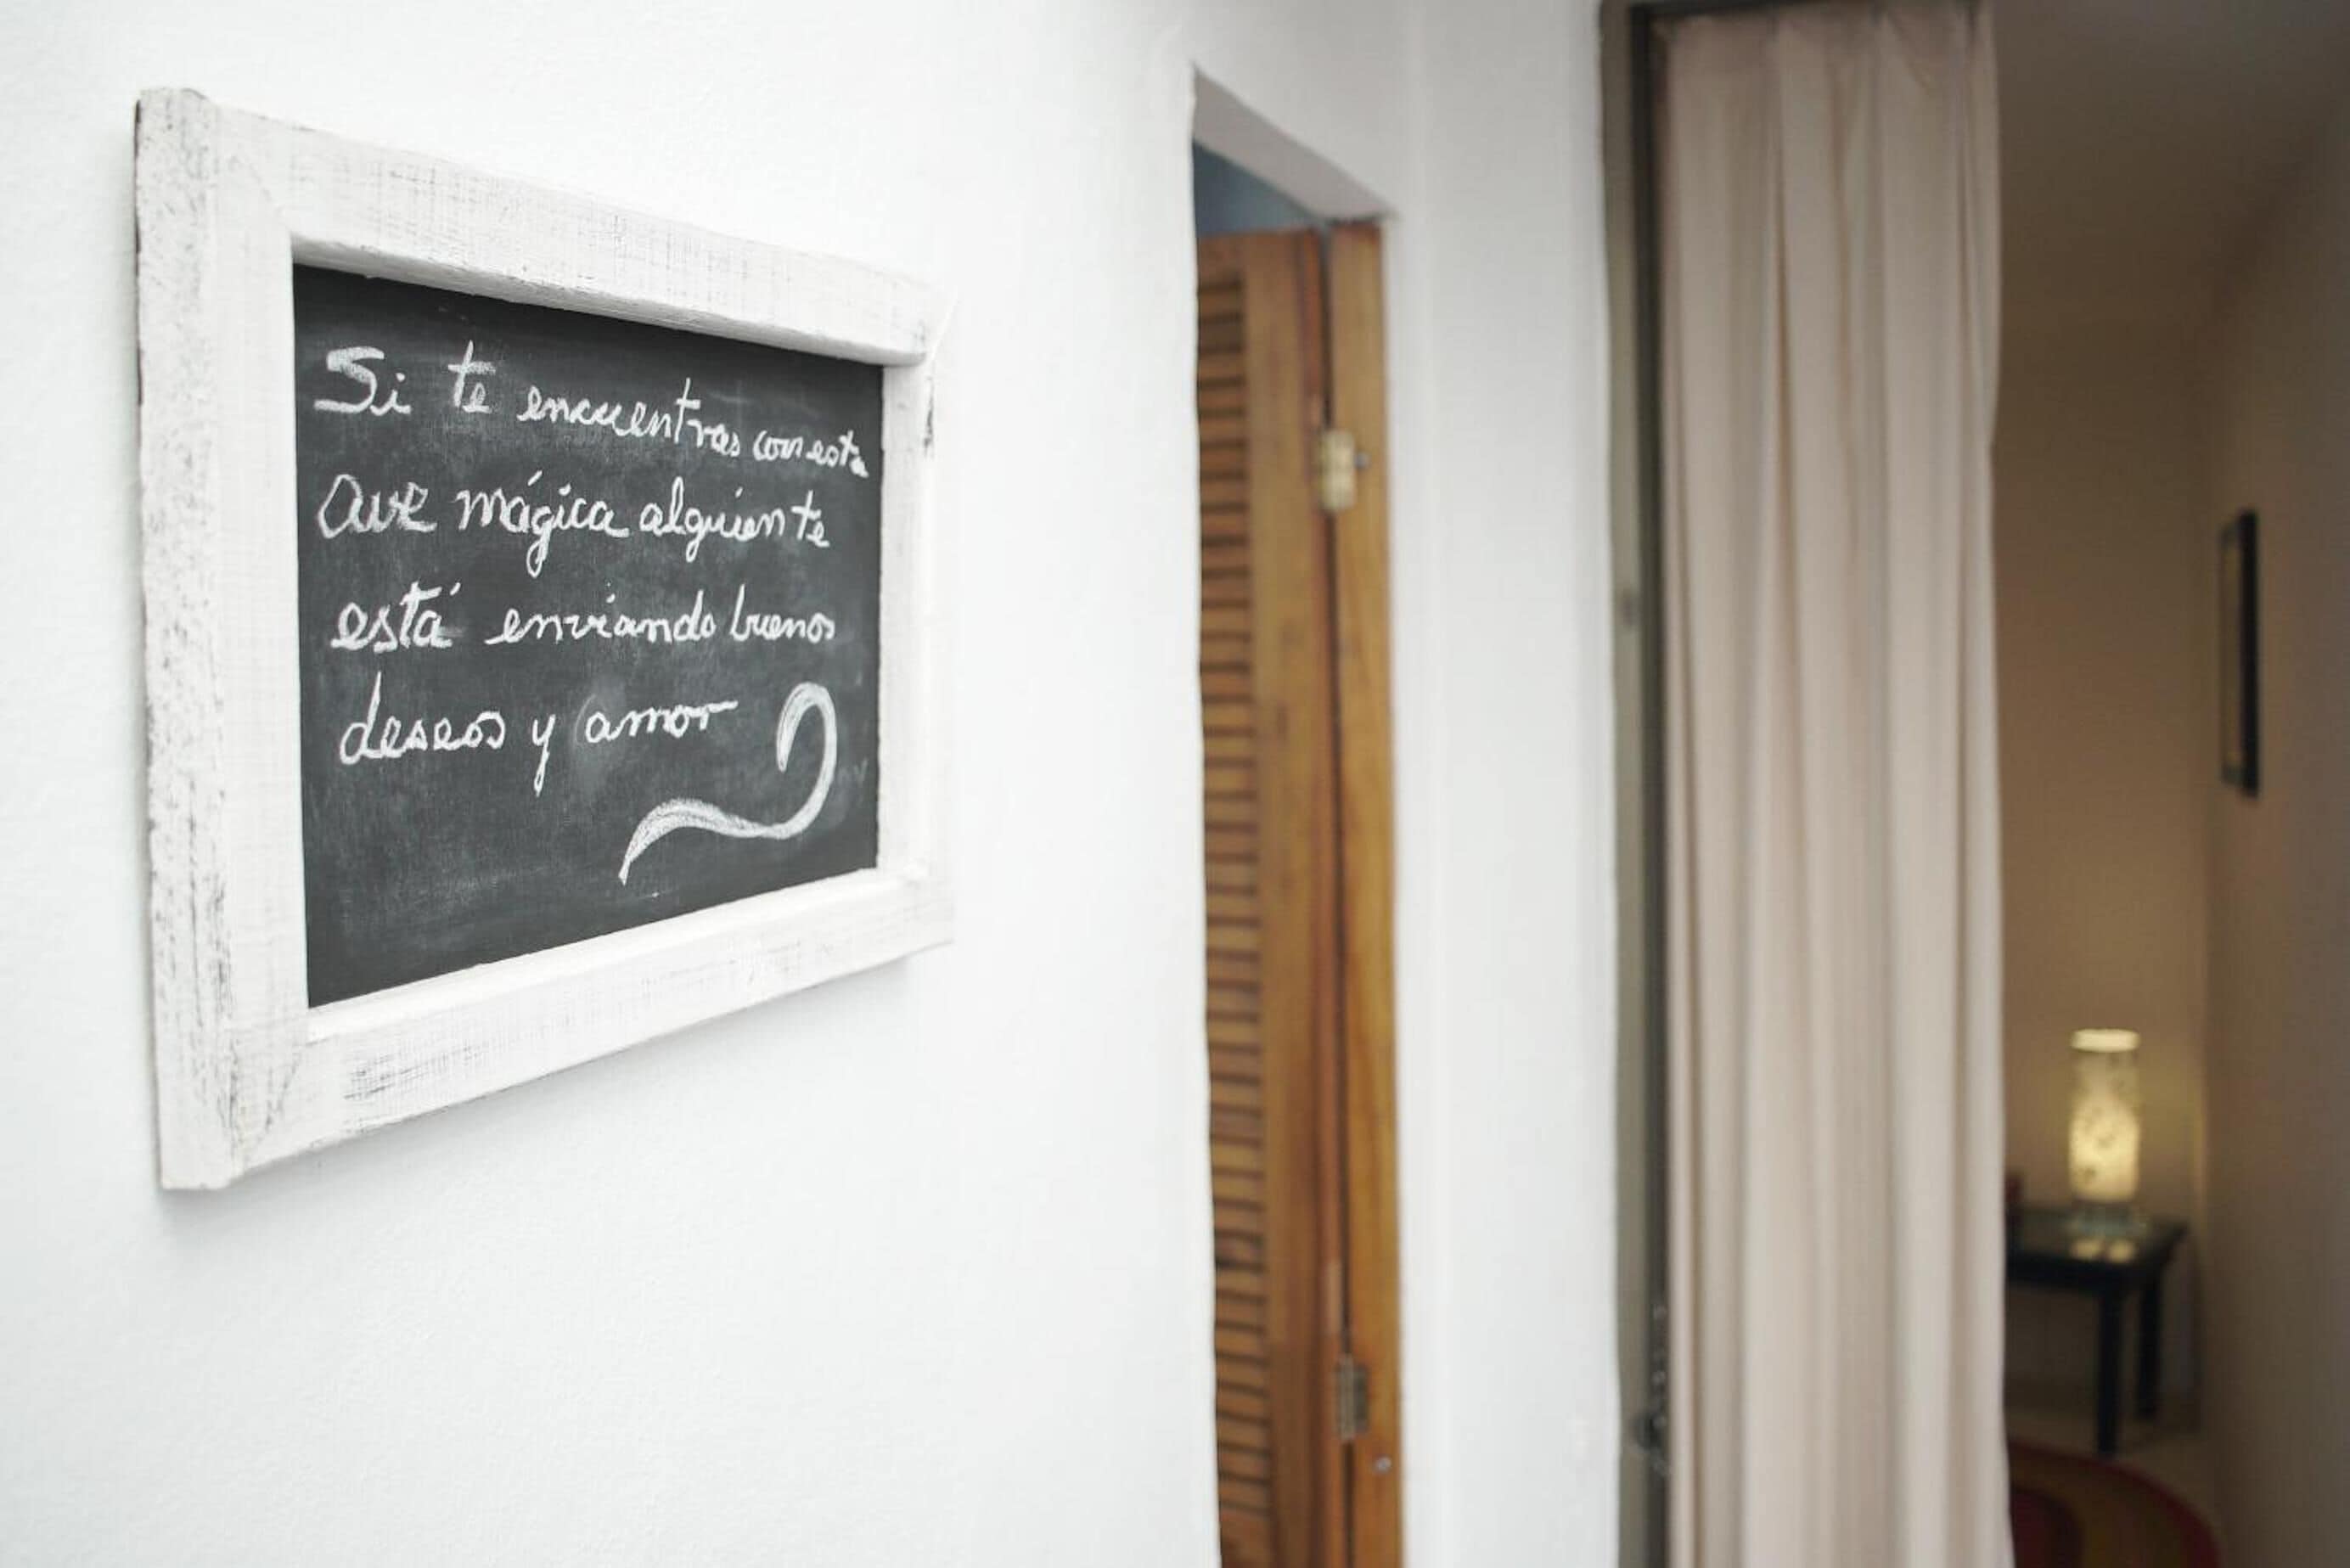 Si te encuentras con esta
ave mágica alguien te
está enviando buenos
deseos y amor